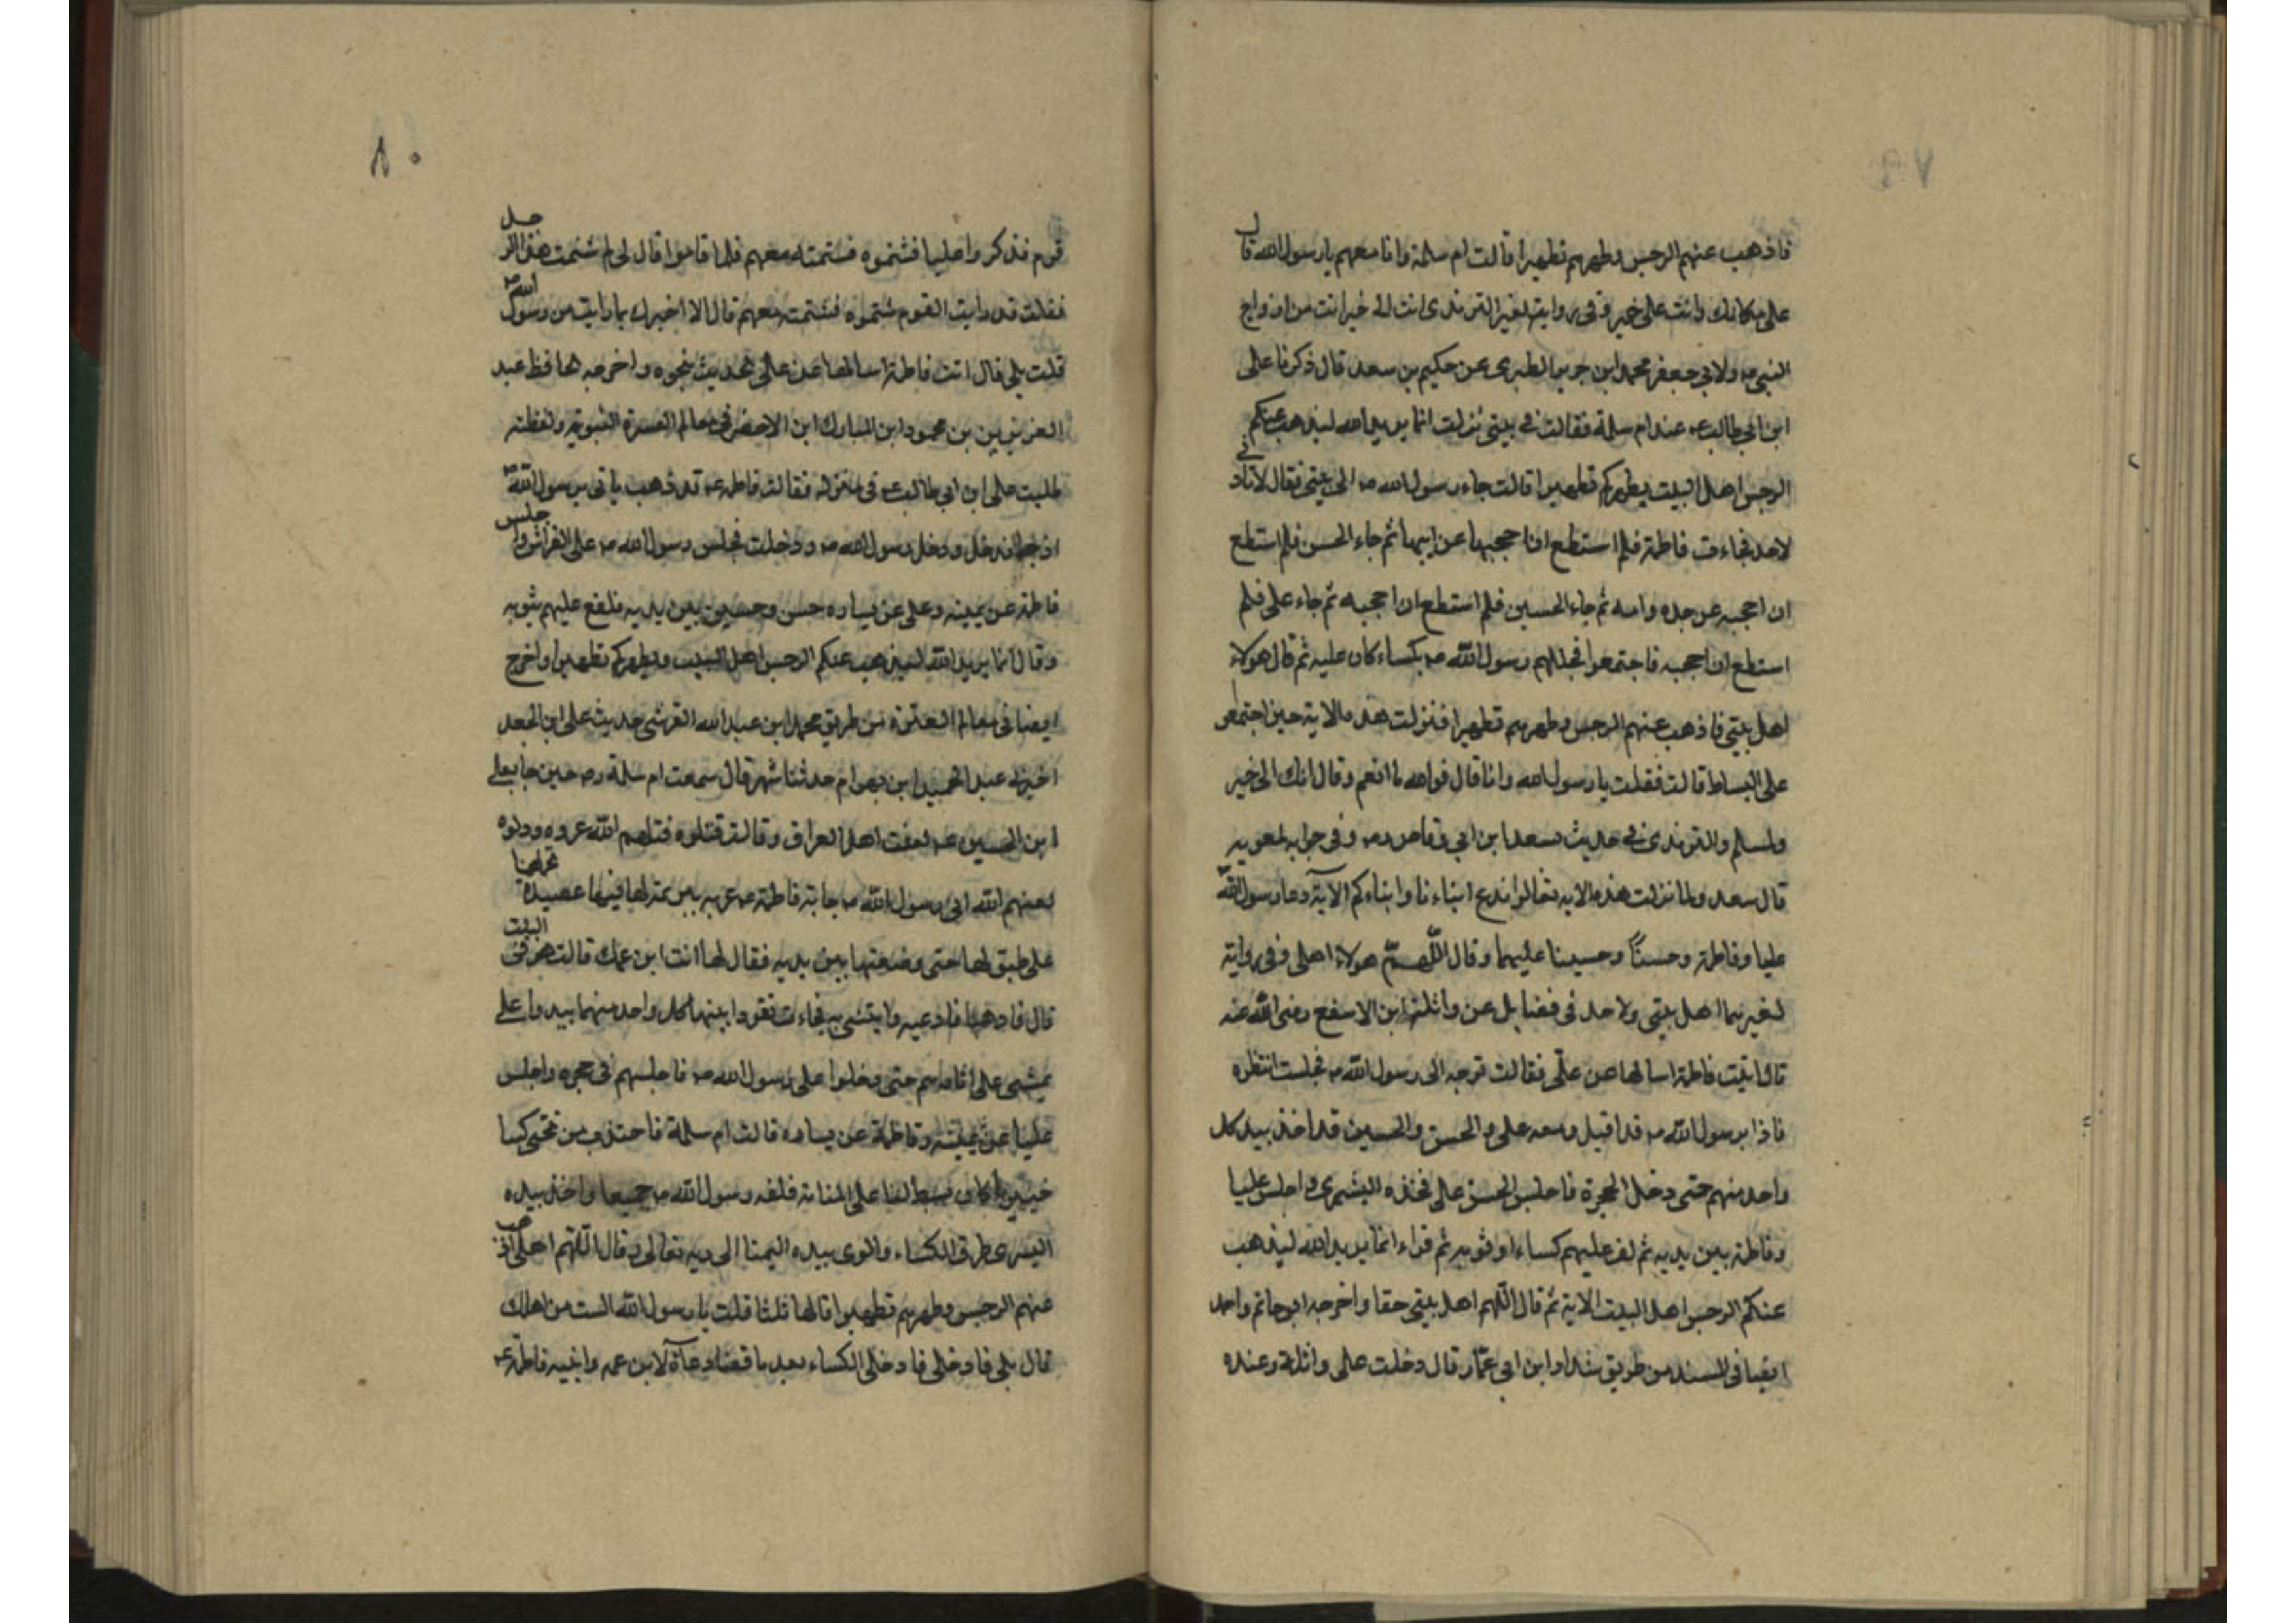 فاذهب عنهم الرجس وطهرهم تطهيرا قالت ام سلمة وانا معهم يا رسول الله قال
على مكانك وانت على خير وفى رواية لغير الترمذى انت الى خير انت من ازواج
النبي ص ولابي جعفر محمد ابن جرير الطبرى عن حكيم بن سعد قال ذكرنا على
ابن ابي طالب ع عند ام سلمة فقالت فى بيتى نزلت انما يريد الله ليذهب عنكم
الرجس اهل البيت ويطهركم تطهيرا قالت جاء رسول الله ص الى بيتى فقال لا تاذنى
لاحد فجاءت فاطمة فلم استطع ان احجبها عن ابيها ثم جاء الحسن فلم استطع
ان احجبه عن جده وامه ثم جاء الحسين فلم استطع ان احجبه ثم جاء على فلم
استطع ان احجبه فاجتمعوا فجللهم رسول الله ص بكساء كان عليه ثم قال هولاء
اهل بيتى فاذهب عنهم الرجس وطهرهم تطهيرا فنزلت هذه الاية حين اجتمعوا
على البساط قالت فقلت يا رسول الله وانا قال فوالله ما انعم وقال انك الى خير
ولمسلم والترمذى فى حديث سعد ابن ابي وقاص وفى جوابه لمعويه
قال سعد ولما نزلت هذه الايه تعالوا ندع ابناءنا وابناءكم الآية دعا رسول الله
عليا وفاطمة وحسنا وحسينا عليهما وقال اللهم هولاء اهلى وفى رواية
لغيرهما اهل بيتى ولاحمد فى فضايل عن واثلة ابن الاسقع رضى الله عنه
قال اتيت فاطمة اسالها عن على فقالت توجه الى رسول الله ص فجلست انتظره
فاذا برسول الله ص قد اقبل ومعه على و الحسن والحسين قد اخذ بيد كل
واحد منهم حتى دخل الحجرة فاجلس الحسن على فخذه واجلس عليا
وفاطمة بين يديه ثم لف عليهم كساء او ثوبه ثم قراء انما يريد الله ليذهب
عنكم الرجس اهل البيت الاية ثم قال اللهم اهل بيتى حقا واخرجه ابو حاتم واحمد
ايضا فى المسند من طريق شداد ابن ابي عمار قال دخلت على واثلة وعنده
٨٠
قوم فذكروا عليا فشتموه فشتمته معهم فلما قاموا قال لى لم شتمت هذا الرجل
فقلت قد رايت القوم شتموه فشتمته معهم قال الا اخبرك بما رايت من رسول الله ص
قلت بلى قال اتت فاطمة اسالها عن على الحديث بنحوه واخرجه الحافظ عبد
العزيز بن محمود ابن المبارك ابن الاخضر فى معالم العترة النبوية ولفظه
طلبت على ابن ابي طالب ع فى منزله فقالت فاطمة ع قد ذهب ياتى برسول الله ص
اذ جاء فدخل ودخل رسول الله ص ودخلت فجلس رسول الله ص على الفراش واجلس
فاطمة عن يمينه وعلى عن يساره حسن وحسين بين يديه فلفع عليهم بثوبه
وقال انما يريد الله ليذهب عنكم الرجس اهل البيت ويطهركم تطهيرا واخرج
ايضا فى معالم العترة من طريق محمد ابن عبد الله القرشى حديث على ابن الجعد
اخبرنى عبد الحميد ابن بهرام حدثنا شهر قال سمعت ام سلمة رض حين جا نعى
ابن الحسين ع لعنت اهل العراق وقالت قتلوه قتلهم الله غروه وذلوه
لعنهم الله انى رسول الله ص جاءته فاطمة ع فيها عصيدة تحملها
على طبق لها حتى وضعتها بين يديه فقال لها اين ابن عمك قالت هو فى البيت
قال فاذهبى فادعيه وايتنى به فجاءت تقود ابنيها كل واحد منهما بيد وعلى
يمشى على اثارهم حتى دخلوا على رسول الله ص فاجلسهم فى حجره واجلس
عليا عن يمينه وفاطمة عن يساره قالت ام سلمة فاجتذب من تحتى كسا
خيبريا كان بساطا لنا على المنامة فلفه رسول الله ص جميعا واخذ بيده
اليسرى طرفى الكساء والوى بيده اليمنا الى ربه تعالى وقال اللهم اهلى اذهب
عنهم الرجس وطهرهم تطهيرا قالها ثلثا قلت يا رسول الله الست من اهلك
قال بلى فادخلى فادخلى الكساء بعد ما قضا دعاءه لابن عمه وابنيه فاطمة ع